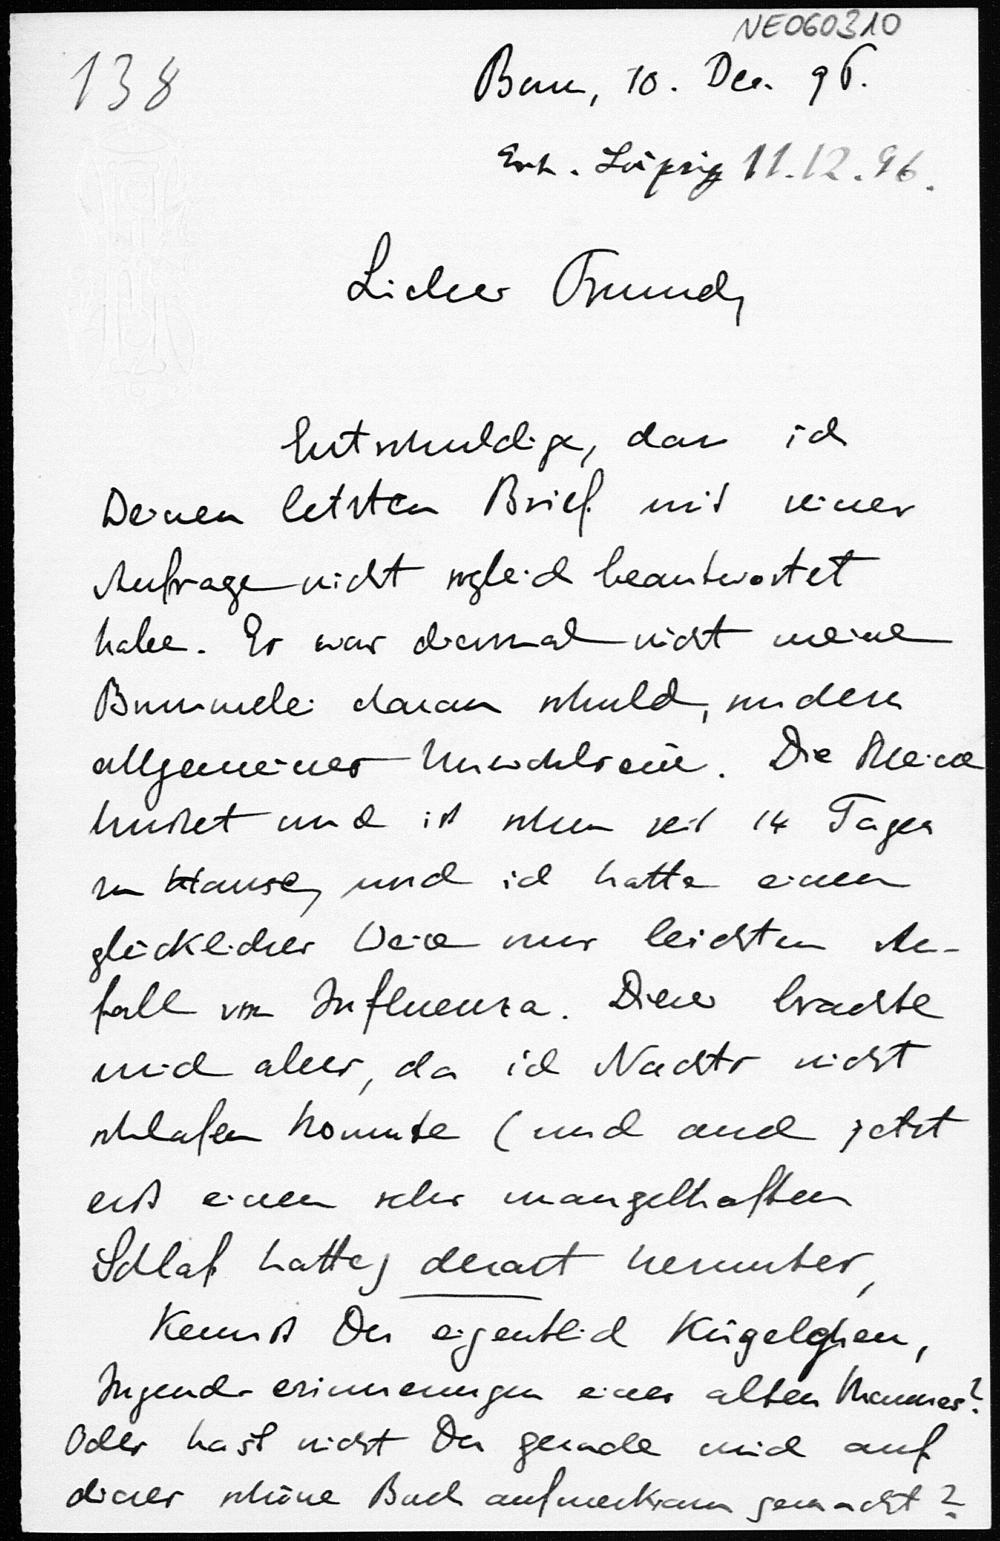 NE060310
138
Bonn, 10. Dec. 96.
Erh. Leipzig 11.12.96.
Lieber Freund,
Entschuldige, dass ich
Deinen letzten Brief mit seiner
Anfrage nicht sogleich beantwortet
habe. Es war diesmal nicht meine
Bummelei daran schuld, sondern
allgemeines Unwohlsein. Die Kleine
hustet und ist schon seit 14 Tagen
zu Hause, und ich hatte einen
glücklicher Weise nur leichten An-
fall von Influenza. Diese brachte
mich aber, da ich Nachts nicht
schlafen konnte (und auch jetzt
erst einen sehr mangelhaften
Schlaf hatte) derart herunter,
Kennst Du eigentlich Kügelghen,
Jugend-erinnerungen eines alten Mannes?
Oder hast nicht Du gerade mich auf
dieses schöne Buch aufmerksam gemacht?